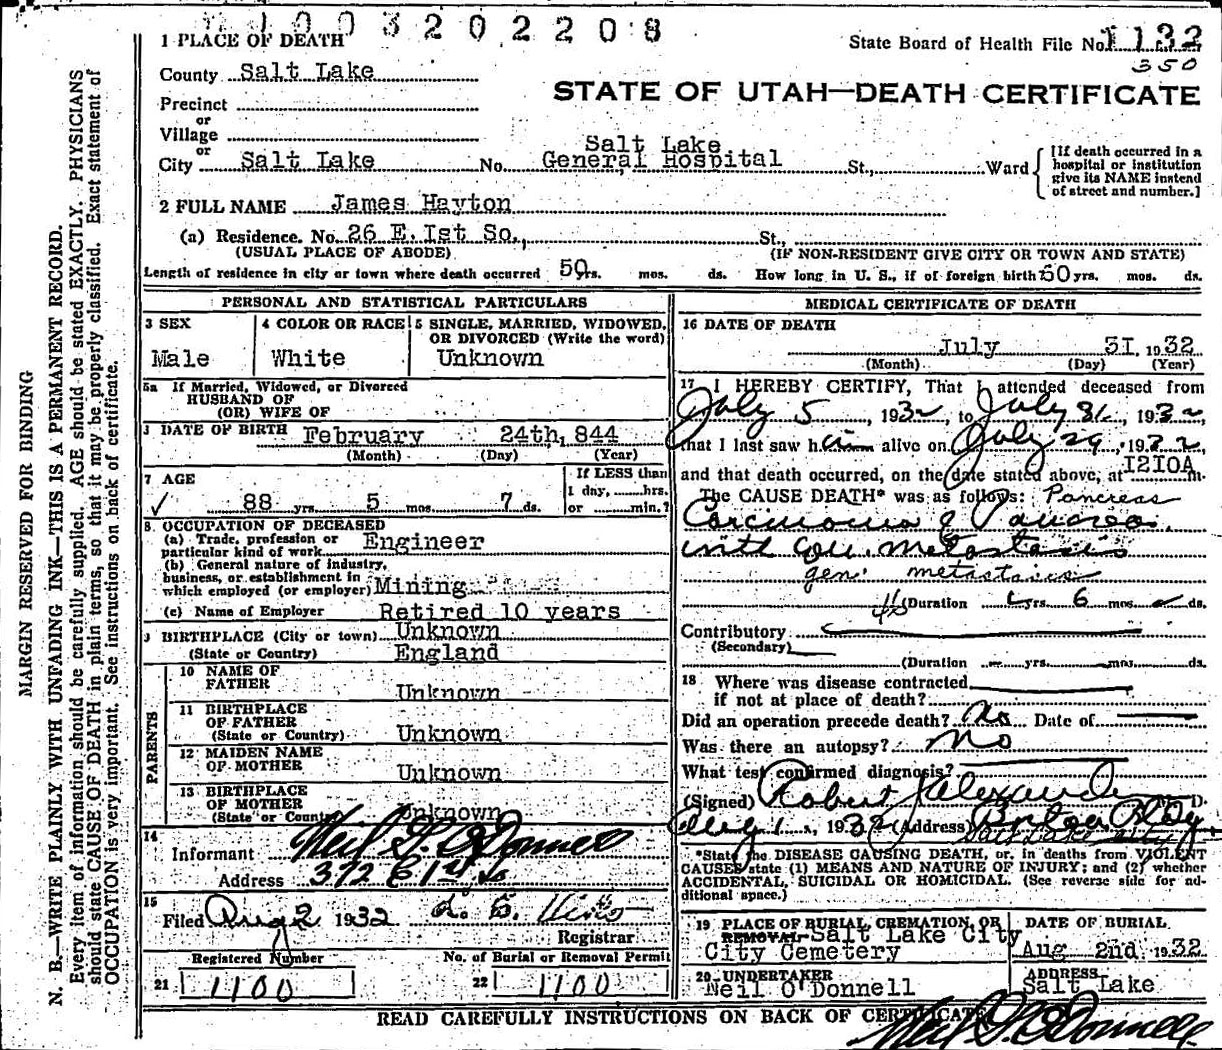 1003202208
1 PLACE OF DEATH
State Board of Health File No. 1132
350
County Salt Lake
STATE OF UTAH—DEATH CERTIFICATE
Precinct
or
Village
or
City Salt Lake No. Salt Lake General Hospital St., Ward
[If death occurred in a
hospital or institution
give its NAME instead
of street and number.]
2 FULL NAME James Hayton
(a) Residence. No. 26 E. Ist So., St.,
(USUAL PLACE OF ABODE) (IF NON-RESIDENT GIVE CITY OR TOWN AND STATE)
Length of residence in city or town where death occurred 50 yrs. mos. ds. How long in U. S., if of foreign birth 50 yrs. mos. ds.
PERSONAL AND STATISTICAL PARTICULARS
3 SEX
Male
4 COLOR OR RACE
White
5 SINGLE, MARRIED, WIDOWED,
OR DIVORCED (Write the word)
Unknown
5a If Married, Widowed, or Divorced
HUSBAND OF
(OR) WIFE OF
DATE OF BIRTH February 24th, 844
(Month) (Day) (Year)
7 AGE
88 yrs. 5 mos. 7 ds.
If LESS than
1 day, hrs.
or min.?
8. OCCUPATION OF DECEASED
(a) Trade, profession or
particular kind of work Engineer
(b) General nature of industry,
business, or establishment in
which employed (or employer) Mining
(c) Name of Employer Retired 10 years
BIRTHPLACE (City or town) Unknown
(State or Country) England
PARENTS
10 NAME OF
FATHER Unknown
11 BIRTHPLACE
OF FATHER
(State or Country) Unknown
12 MAIDEN NAME
OF MOTHER Unknown
13 BIRTHPLACE
OF MOTHER
(State or Country) Unknown
14
Informant Neil G. O'Donnell
Address 372 E 1st So
15
Filed Aug 2 1932
Registrar
Registered Number
21 1100
No. of Burial or Removal Permit
22 1100
MEDICAL CERTIFICATE OF DEATH
16 DATE OF DEATH
July 31, 1932
(Month) (Day) (Year)
17 I HEREBY CERTIFY, That I attended deceased from
July 5, 1932, to July 31, 1932,
that I last saw him alive on July 29, 1932,
and that death occurred, on the date stated above, at 1210A m.
The CAUSE DEATH* was as follows: Pancreas
Carcinoma of Pancreas
with gen. metastasis
gen. metastasis
(Duration yrs. 6 mos. ds.
Contributory
(Secondary)
(Duration yrs. mos. ds.
18 Where was disease contracted
if not at place of death?
Did an operation precede death? No Date of
Was there an autopsy? No
What test confirmed diagnosis?
(Signed) Robert Alexander M. D.
Aug 1, 1932 (Address)
*State the DISEASE CAUSING DEATH, or, in deaths from VIOLENT
CAUSES state (1) MEANS AND NATURE OF INJURY; and (2) whether
ACCIDENTAL, SUICIDAL OR HOMICIDAL. (See reverse side for ad-
ditional space.)
19 PLACE OF BURIAL, CREMATION, OR
REMOVAL Salt Lake City
City Cemetery
DATE OF BURIAL
Aug 2nd 1932
20 UNDERTAKER
Neil O'Donnell
ADDRESS
Salt Lake
READ CAREFULLY INSTRUCTIONS ON BACK OF CERTIFICATE
Neil G O'Donnell
MARGIN RESERVED FOR BINDING
N. B.—WRITE PLAINLY WITH UNFADING INK—THIS IS A PERMANENT RECORD.
Every item of information should be carefully supplied. AGE should be stated EXACTLY. PHYSICIANS
should state CAUSE OF DEATH in plain terms, so that it may be properly classified. Exact statement of
OCCUPATION is very important. See instructions on back of certificate.